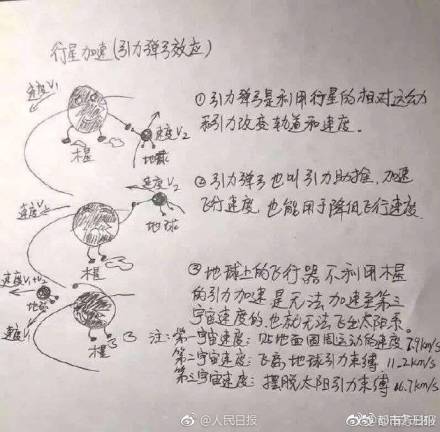 行星加速(引力弹弓效应)
速度V₁
木星
速度V₂
地球
①引力弹弓是利用行星的相对运动
和引力改变轨道和速度。
速度V₁
速度V₂
木星
地球
②引力弹弓也叫引力助推,加速
飞行速度,也能用于降低飞行速度
速度V₁+V₂
地球
速度V₁
木星
③地球上的飞行器不利用木星
的引力加速是无法加速至第三
宇宙速度的,也就无法飞出太阳系。
注:第一宇宙速度:贴地面圆周运动的速度 7.9km/s
第二宇宙速度:飞离地球引力束缚 11.2km/s
第三宇宙速度:摆脱太阳引力束缚 16.7km/s
@人民日报